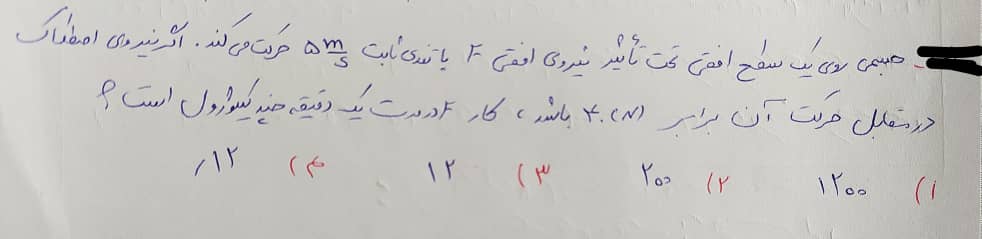 جسمی روی یک سطح افقی تحت تأثیر نیروی افقی F با تندی ثابت ۵ m/s حرکت می‌کند. اگر نیروی اصطکاک
در مقابل حرکت آن برابر ۴۰(N) باشد، کار F در مدت یک دقیقه چند کیلوژول است؟
۱) ۱۲۰۰ ۲) ۲۰۰ ۳) ۱۲ ۴) ۱۲٫